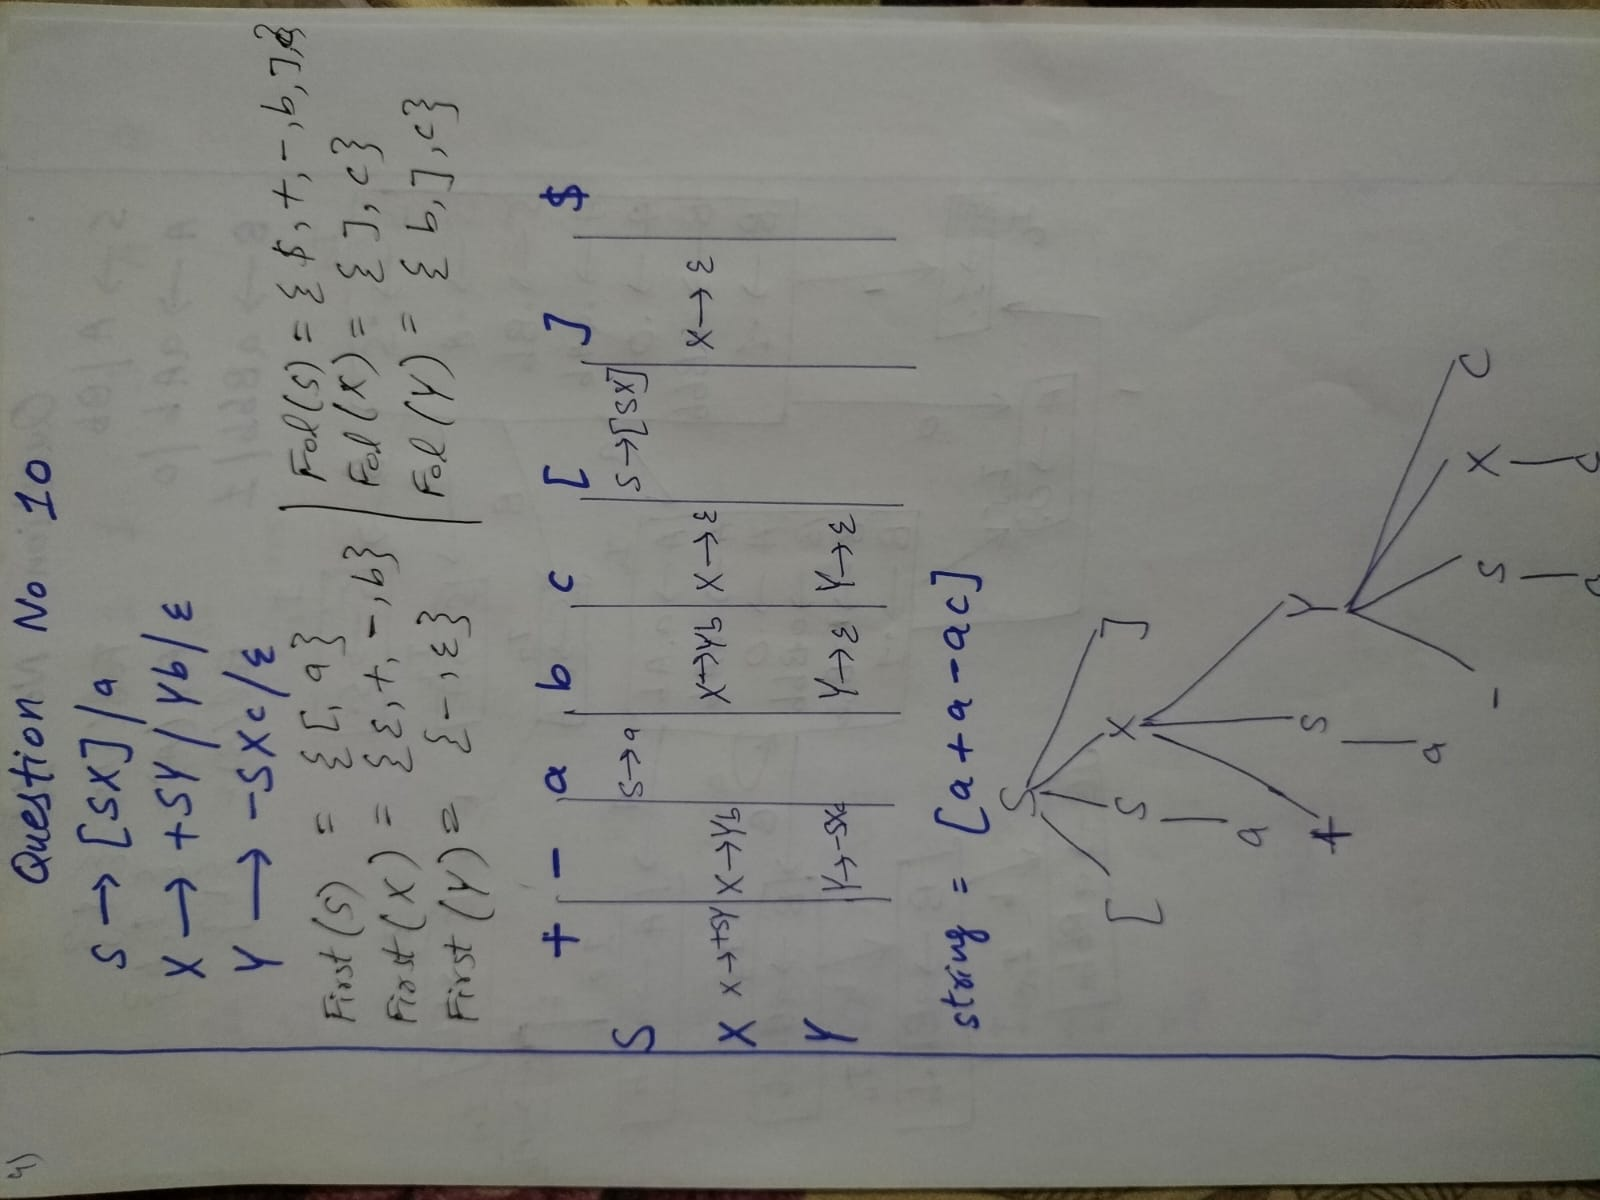 4)
Question No 10
S → [SX] / a
X → +SY / Yb / ε
Y → -SXc / ε
First (S) = {[, a}
First (X) = {ε, +, -, b}
First (Y) = {-, ε}
Fol(S) = {$, +, -, b, ], c}
Fol(X) = {], c}
Fol(Y) = {b, ], c}
+ - a b c [ ] $
S S→a S→[SX]
X X→+SY X→Yb X→Yb X→ε X→ε
Y Y→-SXc Y→ε Y→ε
string = [a + a - ac]
S
[ S X ]
a + S Y
a - S X c